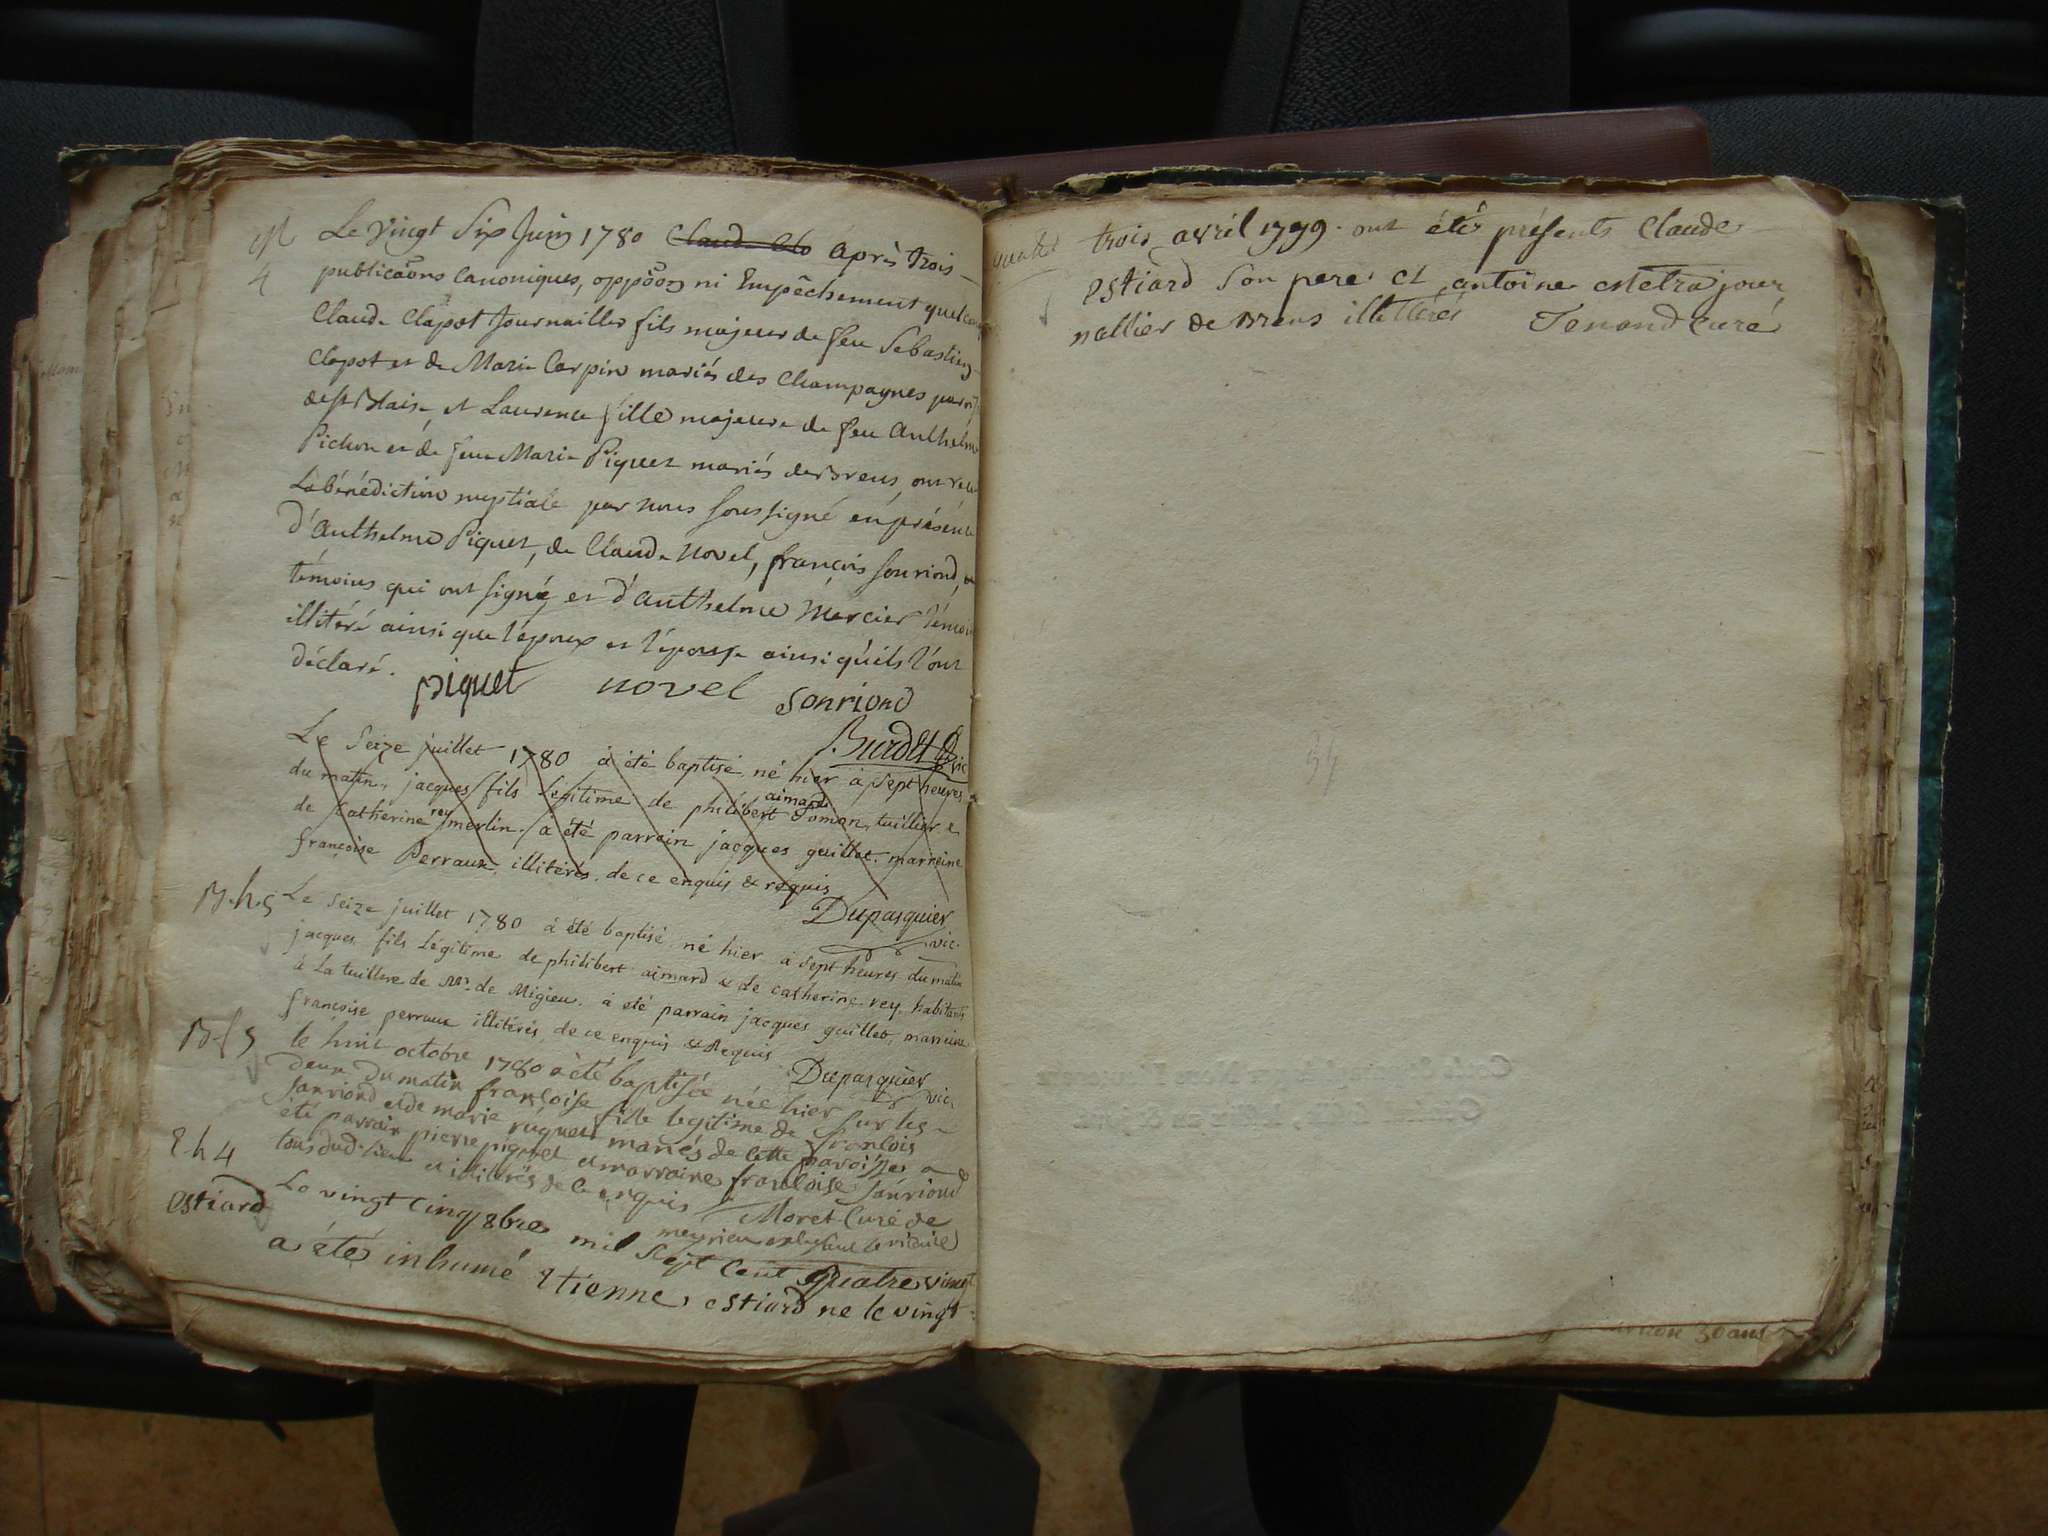 M
4
Le vingt six juin 1780 Claud. Clo après trois
publicãons canoniques, oppõon ni Empêchement quelconq
Claude Clapot journaillier fils majeur de feu Sebastien
Clapot et de Marie Carpin mariés des Champagnes paroi
de St Blaise et Laurence fille majeure de feu Anthelme
Pichon et de feue Marie Piquet mariés de Brens, ont recu
La bénédiction nuptiale par nous soussigné en présence
d'Anthelme Piquet, de Claude Novel, françois sonriond,
témoins qui ont signé, et d'Anthelme Mercier témoin
illitéré ainsi que l'epoux et l'epouse ainsi qu'ils l'ont
déclaré.
piquet novel sonriond
Burdet vic
Le seize juillet 1780 à été baptisé, né hier à sept heures
du matin, jacques fils legitime de philibert aimard tuillier &
de Catherine rey merlin. à été parrain jacques guillet. marreine
françoise Perraux, illitérés. de ce enquis & requis
Dupasquier
vic.
B.h.5
Le seize juillet 1780 à été baptisé né hier à sept heures du matin
jacques fils Légitime de philibert aimard & de catherine rey, habitants
à La tuillere de Mr. de Migieu. à été parrain jacques guillet, marreine
françoise perraux illitérés, de ce enquis & Requis
Dupasquier
vic.
B f 5
le huit octobre 1780 a été baptisée née hier sur les
deux du matin françoise fille legitime de francois
sanriond et de marie ruquet mariés de cette paroisse a
été parrain pierre piquet et marraine francoise sanriond
tous dud. lieu et illitérés de ce enquis
Moret Curé de
meyrieu
E h 4
estiard
Le vingt cinq 8bre mil sept cent quatre vingt
a été inhumé etienne estiard ne le vingt
quatre
trois avril 1799. ont étés présents Claude
estiard son pere et antoine metra jour
nallier de Brens illettérés Tenand curé
54
30 ans